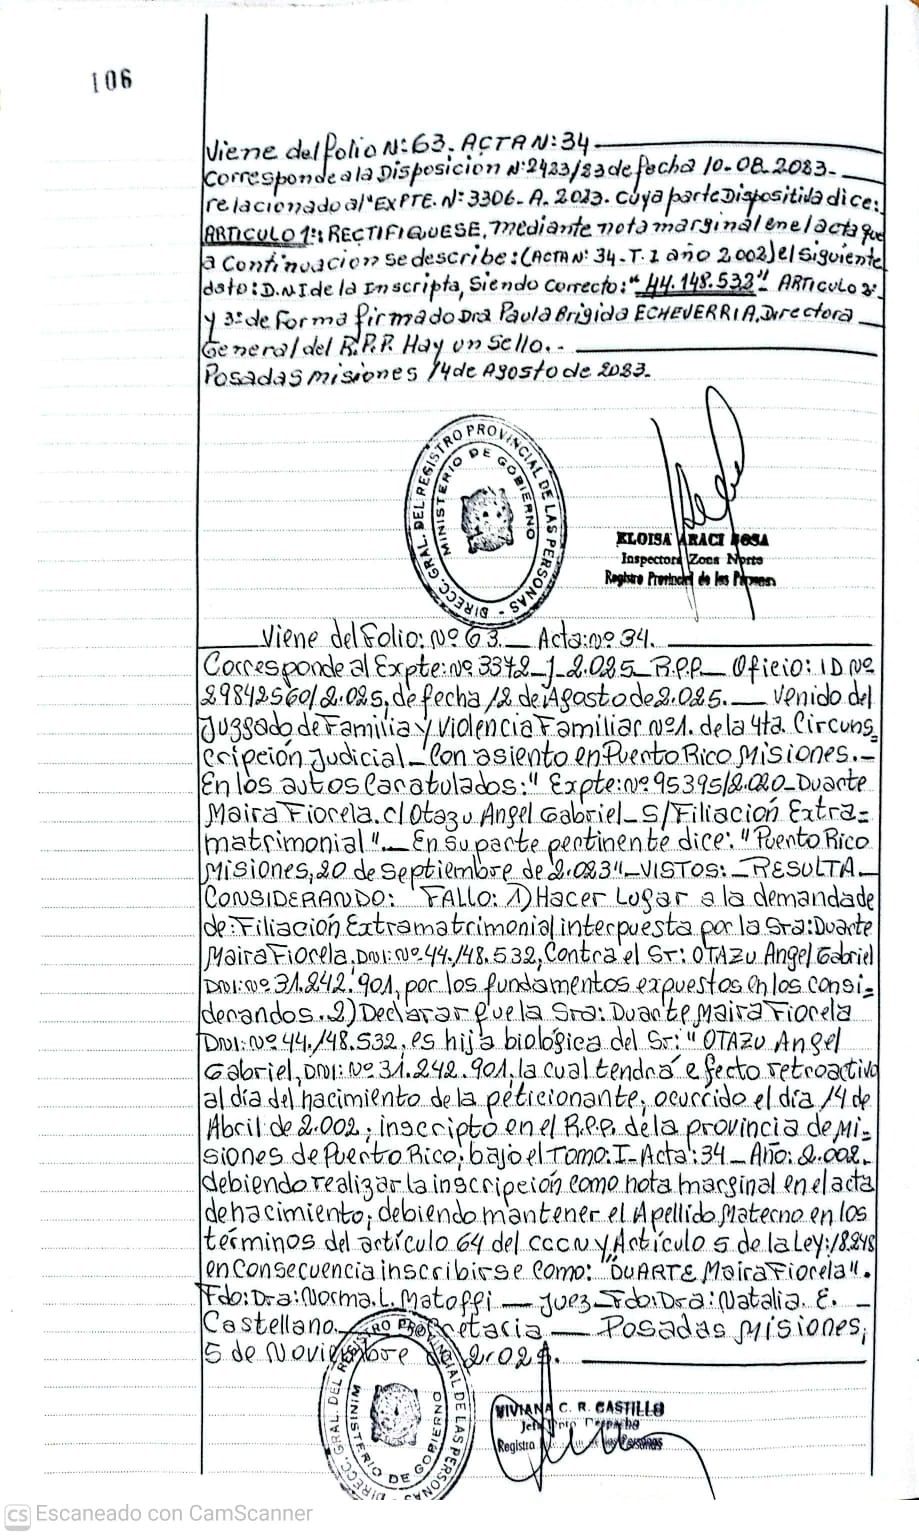 106
Viene del folio Nº: 63. ACTA N: 34
Corresponde a la Disposicion Nº 2423/23 de fecha 10-08-2023.
relacionado al "EXPTE. Nº: 3306-A. 2023. cuya parte Dispositida dice:
ARTICULO 1º: RECTIFIQUESE, mediante nota marginal en el acta que
a Continuacion se describe: (ACTA Nº 34-T. 1 año 2002) el siguiente
dato: D.N.I de la Inscripta, Siendo correcto: "44.148.532" ARTICULO 2º
y 3º de Forma firmado Dra Paula Brigida ECHEVERRIA, Directora
General del R.P.P. Hay un Sello.-
Posadas Misiones 14 de Agosto de 2023.
DIRECC. GRAL. DEL REGISTRO PROVINCIAL DE LAS PERSONAS
MINISTERIO DE GOBIERNO
ELOISA ARACI SOSA
Inspectora Zona Norte
Registro Provincial de las Personas
Viene del Folio: Nº 63.— Acta: Nº 34.
Corresponde al Expte: Nº 3372-J-2.025-R.P.P.— Oficio: ID Nº
29842560/2.025, de fecha 12 de Agosto de 2.025.— Venido del
Juzgado de Familia y Violencia Familiar Nº 1. de la 4ta. Circuns_
cripción Judicial_ Con asiento en Puerto Rico Misiones.-
En los autos Caratulados: " Expte: Nº 95395/2.020_ Duarte
Maira Fiorela. c/ Otazu Angel Gabriel_ S/Filiación Extra=
matrimonial".— En su parte pertinente dice: "Puerto Rico
Misiones, 20 de Septiembre de 2.023"_ VISTOS:_ RESULTA_
CONSIDERANDO: FALLO: 1) Hacer Lugar a la demandade
de: Filiación Extramatrimonial interpuesta por la Sra: Duarte
Maira Fiorela. DNI: Nº 44.148.532, Contra el Sr: OTAZU Angel Gabriel
DNI: Nº 31.242.901, por los fundamentos expuestos en los consi_
derandos. 2) Declarar que la Sra: Duarte Maira Fiorela
DNI: Nº 44.148.532, es hija biológica del Sr: " OTAZU Angel
Gabriel, DNI: Nº 31.242.901, la cual tendrá efecto retroactivo
al día del nacimiento de la peticionante, ocurrido el día 14 de
Abril de 2.002; inscripto en el R.P.P. de la provincia de Mi=
siones de Puerto Rico, bajo el Tomo: I- Acta: 34 _ Año: 2.002.
debiendo realizar la inscripción como nota marginal en el acta
de nacimiento; debiendo mantener el Apellido Materno en los
términos del artículo 64 del CCCN y Artículo 5 de la Ley: 18.248
en Consecuencia inscribirse como: "DUARTE Maira Fiorela".
Fdo: Dra: Norma. L. Matoffi — Juez_ Fdo: Dra: Natalia. E. -
Castellano. Secretaria — Posadas Misiones,
5 de Noviembre de
DIRECC. GRAL. DEL REGISTRO PROVINCIAL DE LAS PERSONAS
MINISTERIO DE GOBIERNO
VIVIANA C. R. CASTILLO
Jefa Dpto Despacho
Registro de las Personas
CS Escaneado con CamScanner